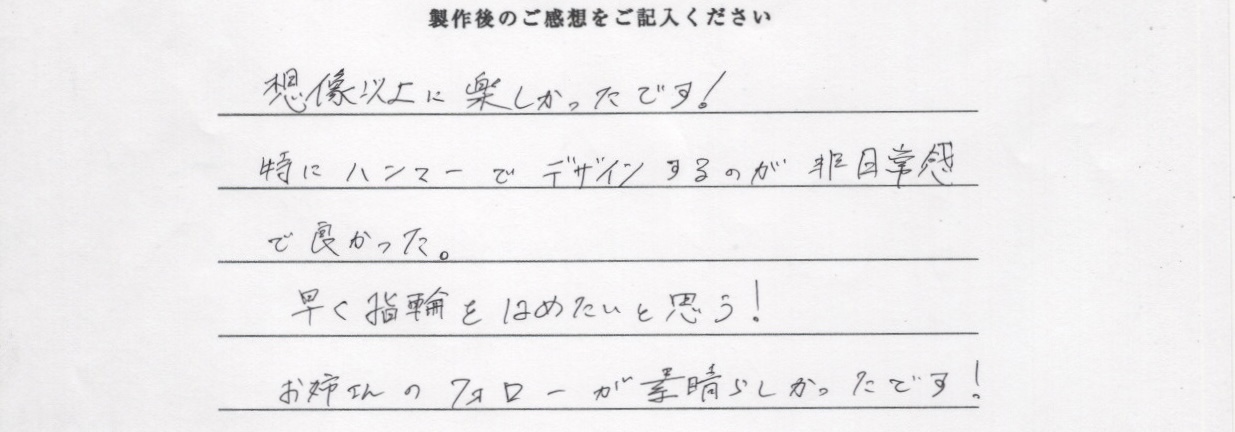 製作後のご感想をご記入ください
想像以上に楽しかったです!
特にハンマーでデザインするのが非日常感
で良かった。
早く指輪をはめたいと思う!
お姉さんのフォローが素晴らしかったです!